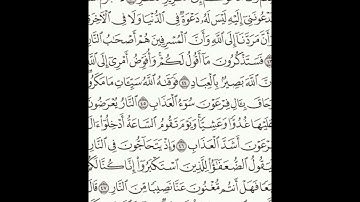 دْعُونَنِىٓ إِلَيْهِ لَيْسَ لَهُۥ دَعْوَةٌ فِى ٱلدُّنْيَا وَلَا فِى ٱلْءَاخِرَ
وَأَنَّ مَرَدَّنَآ إِلَى ٱللَّهِ وَأَنَّ ٱلْمُسْرِفِينَ هُمْ أَصْحَٰبُ ٱلنَّا
٤٣ فَسَتَذْكُرُونَ مَآ أَقُولُ لَكُمْ وَأُفَوِّضُ أَمْرِىٓ إِلَى
نَّ ٱللَّهَ بَصِيرٌۢ بِٱلْعِبَادِ ٤٤ فَوَقَىٰهُ ٱللَّهُ سَيِّـَٔاتِ مَا مَكَرُو
حَاقَ بِـَٔالِ فِرْعَوْنَ سُوٓءُ ٱلْعَذَابِ ٤٥ ٱلنَّارُ يُعْرَضُونَ
عَلَيْهَا غُدُوًّا وَعَشِيًّا ۖ وَيَوْمَ تَقُومُ ٱلسَّاعَةُ أَدْخِلُوٓا۟ ءَا
رْعَوْنَ أَشَدَّ ٱلْعَذَابِ ٤٦ وَإِذْ يَتَحَآجُّونَ فِى ٱلنَّارِ
يَقُولُ ٱلضُّعَفَٰٓؤُا۟ لِلَّذِينَ ٱسْتَكْبَرُوٓا۟ إِنَّا كُنَّا لَكُ
عًا فَهَلْ أَنتُم مُّغْنُونَ عَنَّا نَصِيبًا مِّنَ ٱلنَّارِ ٤٧ قَالَ